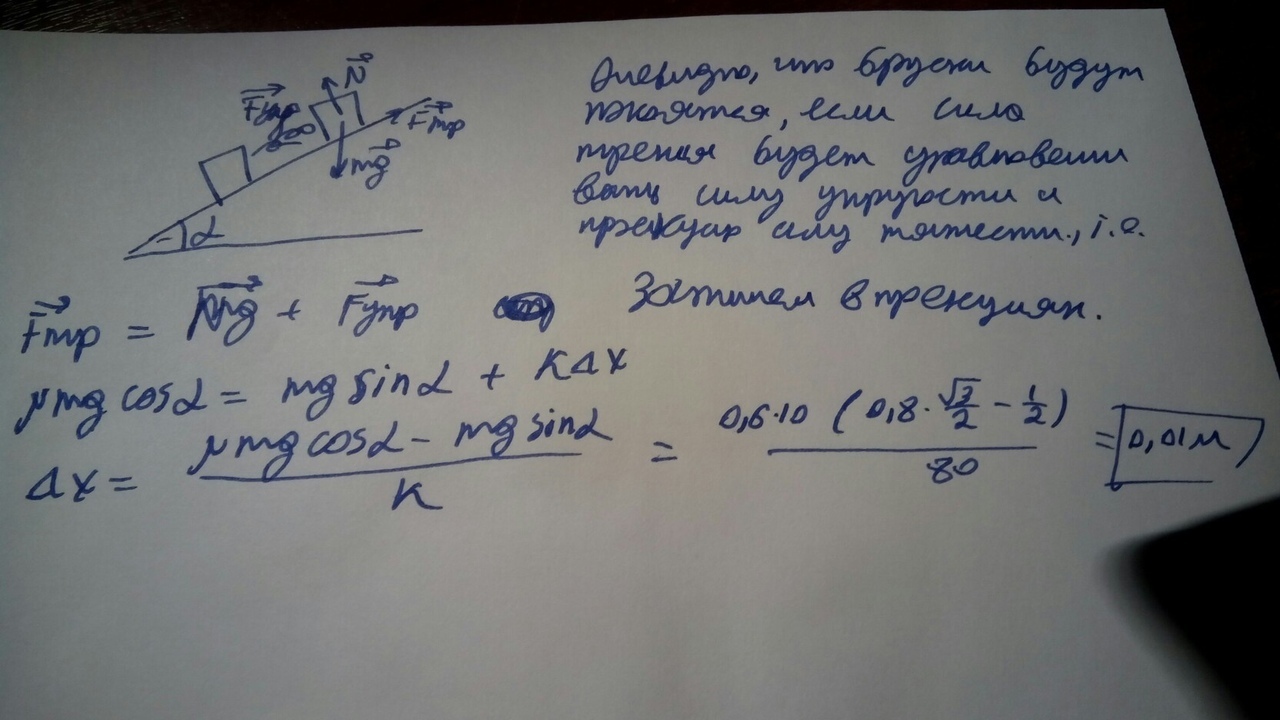 N
Fупр
Fтр
mg
α
Очевидно, что бруски будут
покоятся, если сила
трения будет уравновеши
вать силу упругости и
силу тяжести., т.е.
Fтр = mg + Fупр
Запишем в проекциях.
μmg cosα = mg sinα + KΔX
ΔX = (μmg cosα - mg sinα) / K = 0,6·10 (0,8·√3/2 - 1/2) / 80 = 0,01м